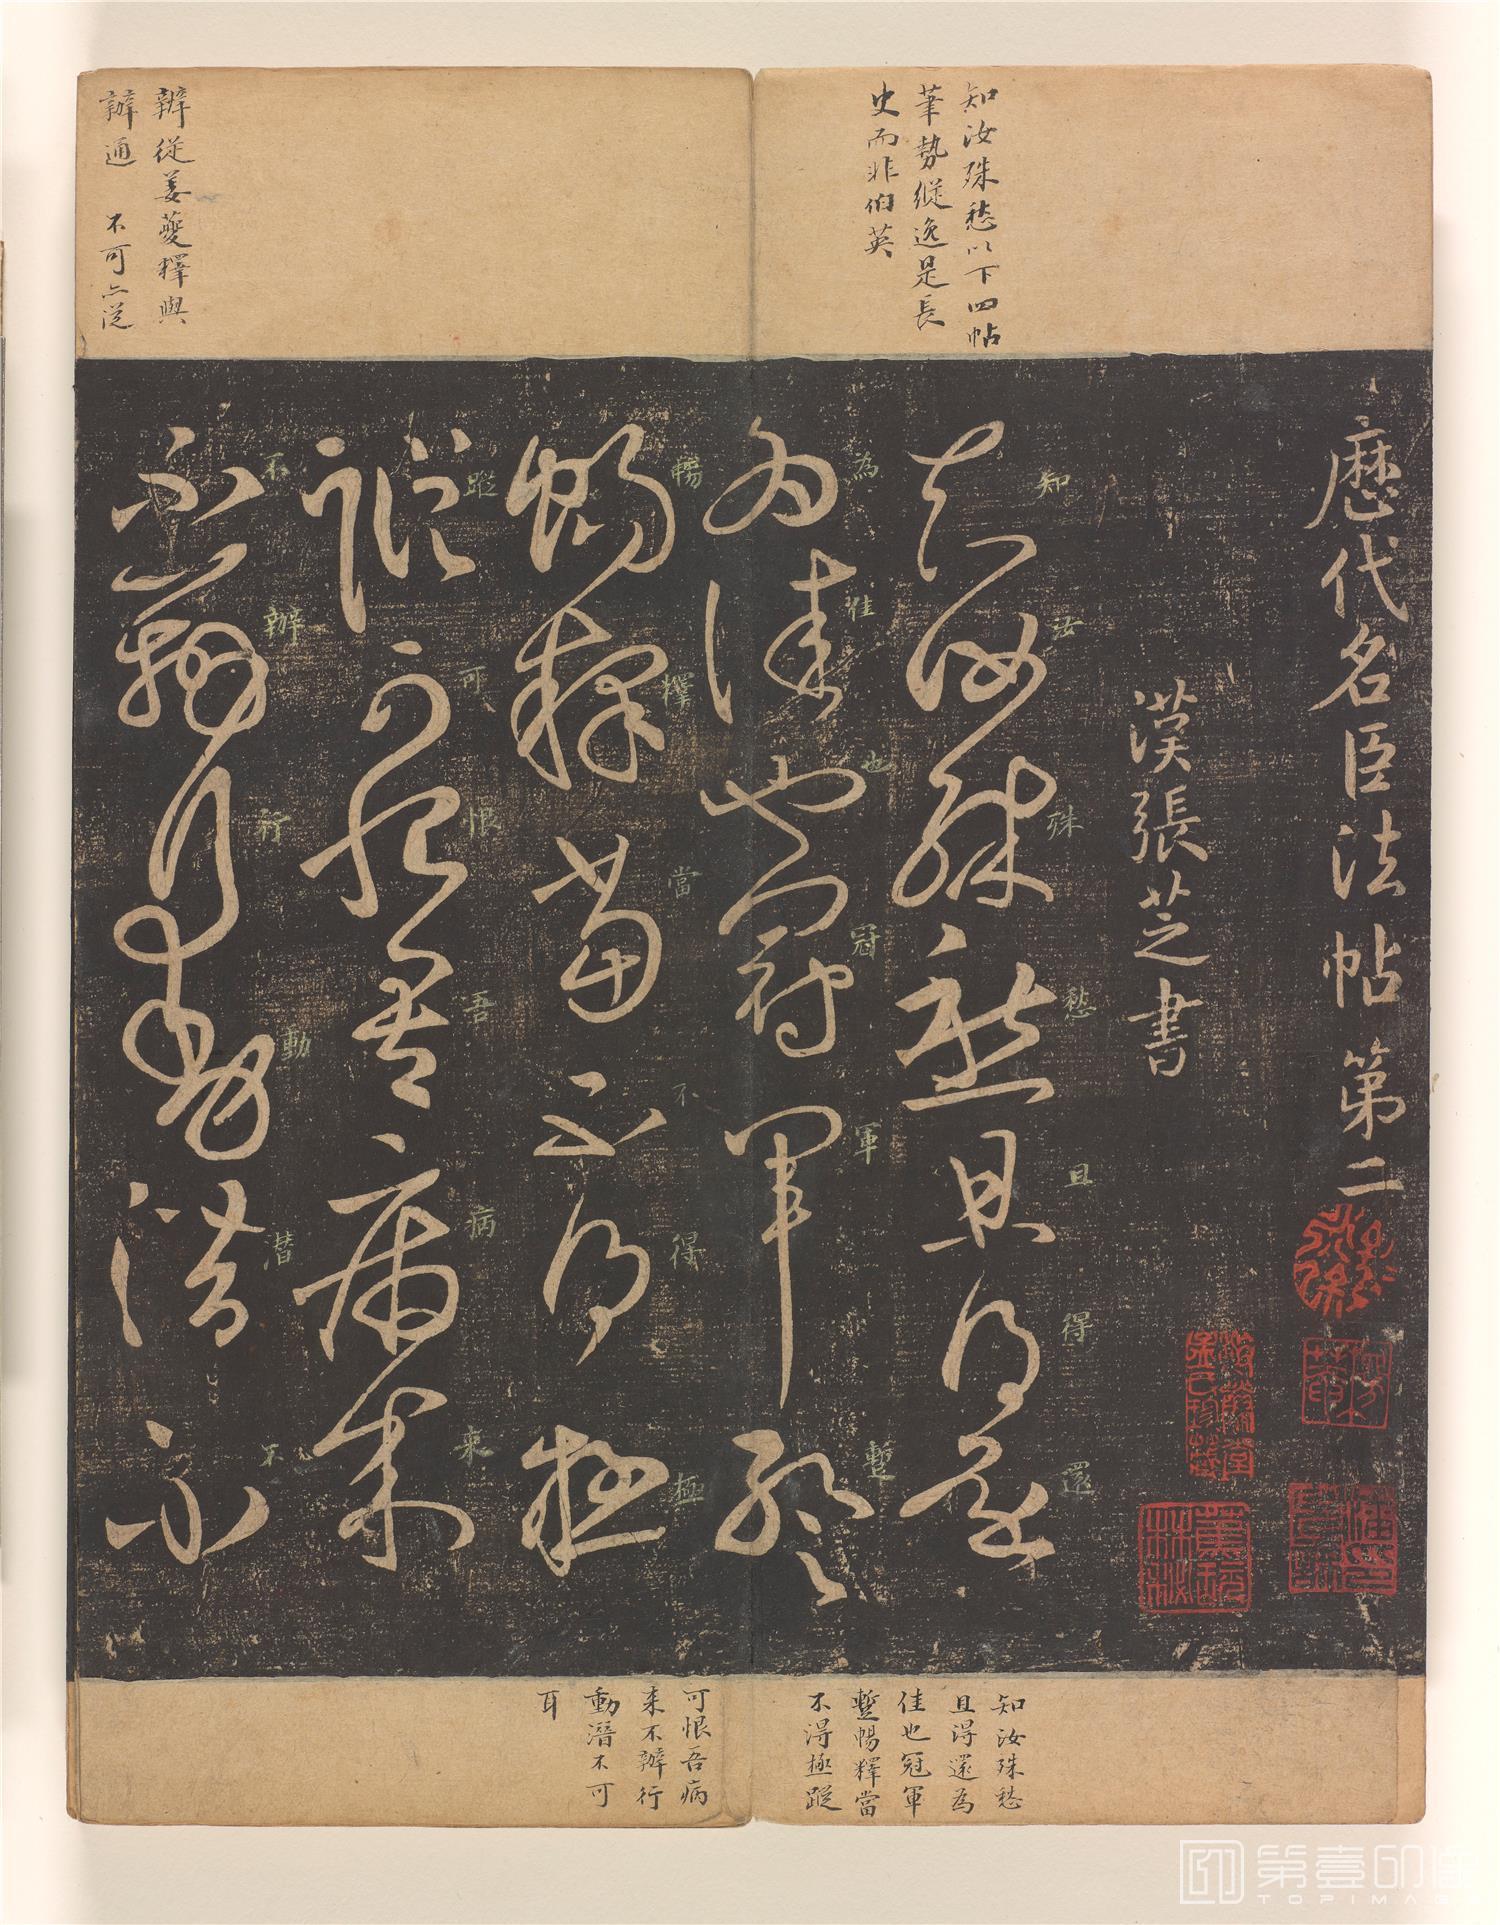 知汝殊愁以下四帖
筆勢縱逸是長
史而非伯英
辦從姜夔釋與
辦通 不可亦從
歷代名臣法帖第二
漢張芝書
知汝殊愁且得還
為佳也冠軍暫
暢釋當不得極
蹤可恨吾病來
不辦行動潛不
知汝殊愁
且得還為
佳也冠軍
暫暢釋當
不得極蹤
可恨吾病
来不辦行
動潛不可
耳
第壹印像
TOPIMAGE